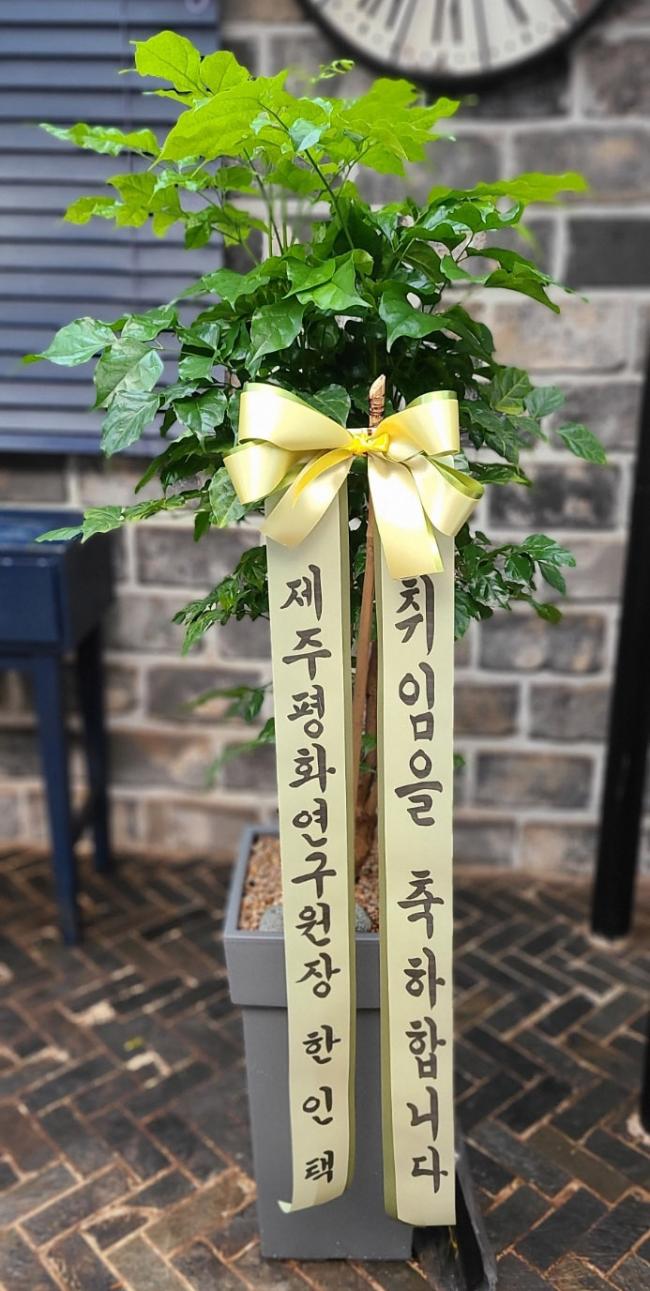 제주평화연구원장 한인택
취임을 축하합니다